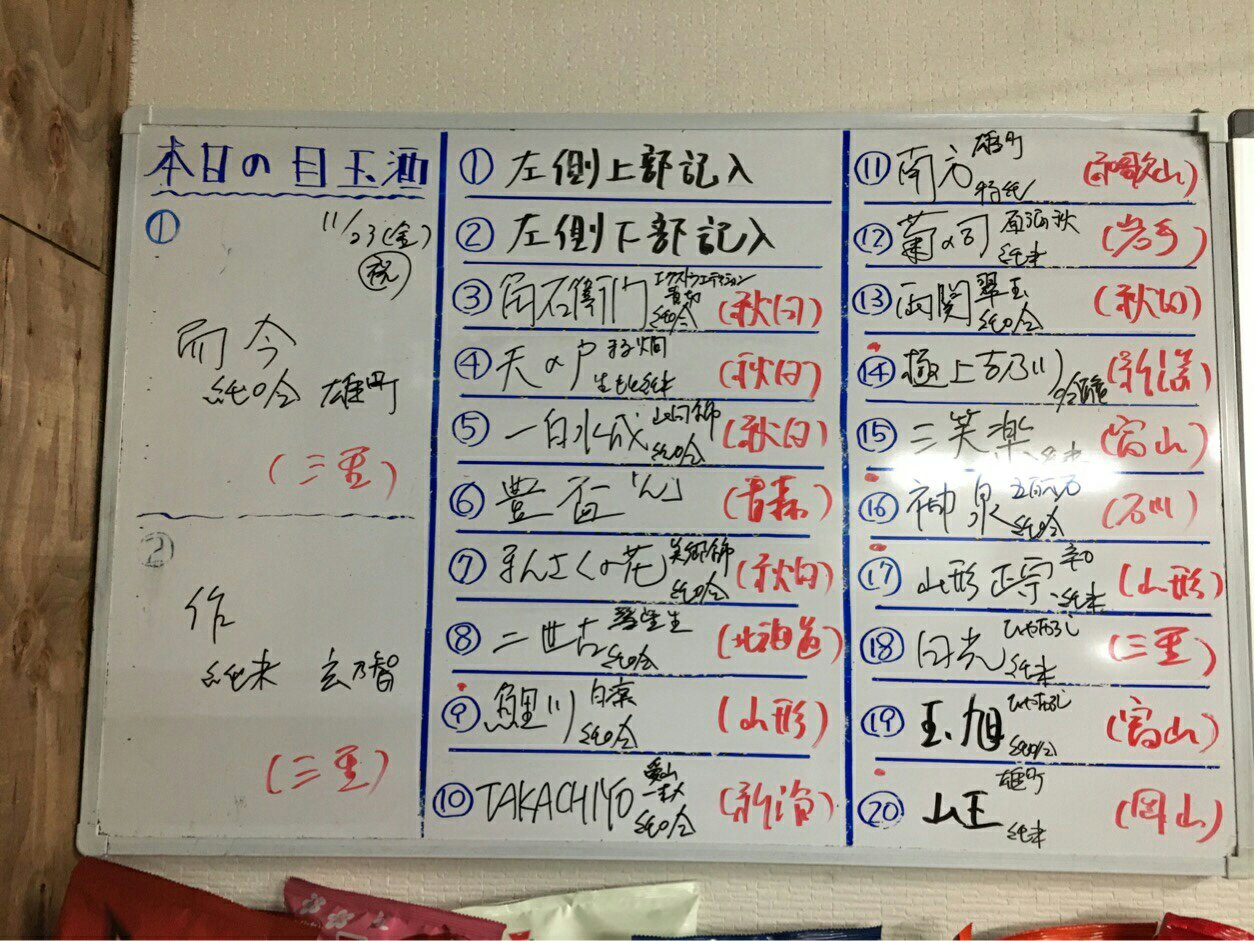 本日の目玉酒
① 11/23(金)
祝
而今
純吟 雄町
(三重)
②
作
純米 玄乃智
(三重)
① 左側上部記入
② 左側下部記入
③ 角右衛門 純吟 (秋田)
④ 天の戸 生もと純米 (秋田)
⑤ 一白水成 純吟 (秋田)
⑥ 豊盃「ん」 (青森)
⑦ まんさくの花 美郷錦 純吟 (秋田)
⑧ 二世古 彗星生 純吟 (北海道)
⑨ 鯉川 純吟 (山形)
⑩ TAKACHIYO 愛山 純吟 (新潟)
⑪ 南方 雄町 特純 (和歌山)
⑫ 菊の司 純米 (岩手)
⑬ 両関 翠玉 純吟 (秋田)
⑭ 極上吉乃川 吟醸 (新潟)
⑮ 三笑楽 純米 (富山)
⑯ 神泉 五百万石 純吟 (石川)
⑰ 山形正宗 辛口 純米 (山形)
⑱ 日光 ひやおろし 純米 (三重)
⑲ 玉旭 ひやおろし 純吟 (富山)
⑳ 山王 雄町 純米 (岡山)